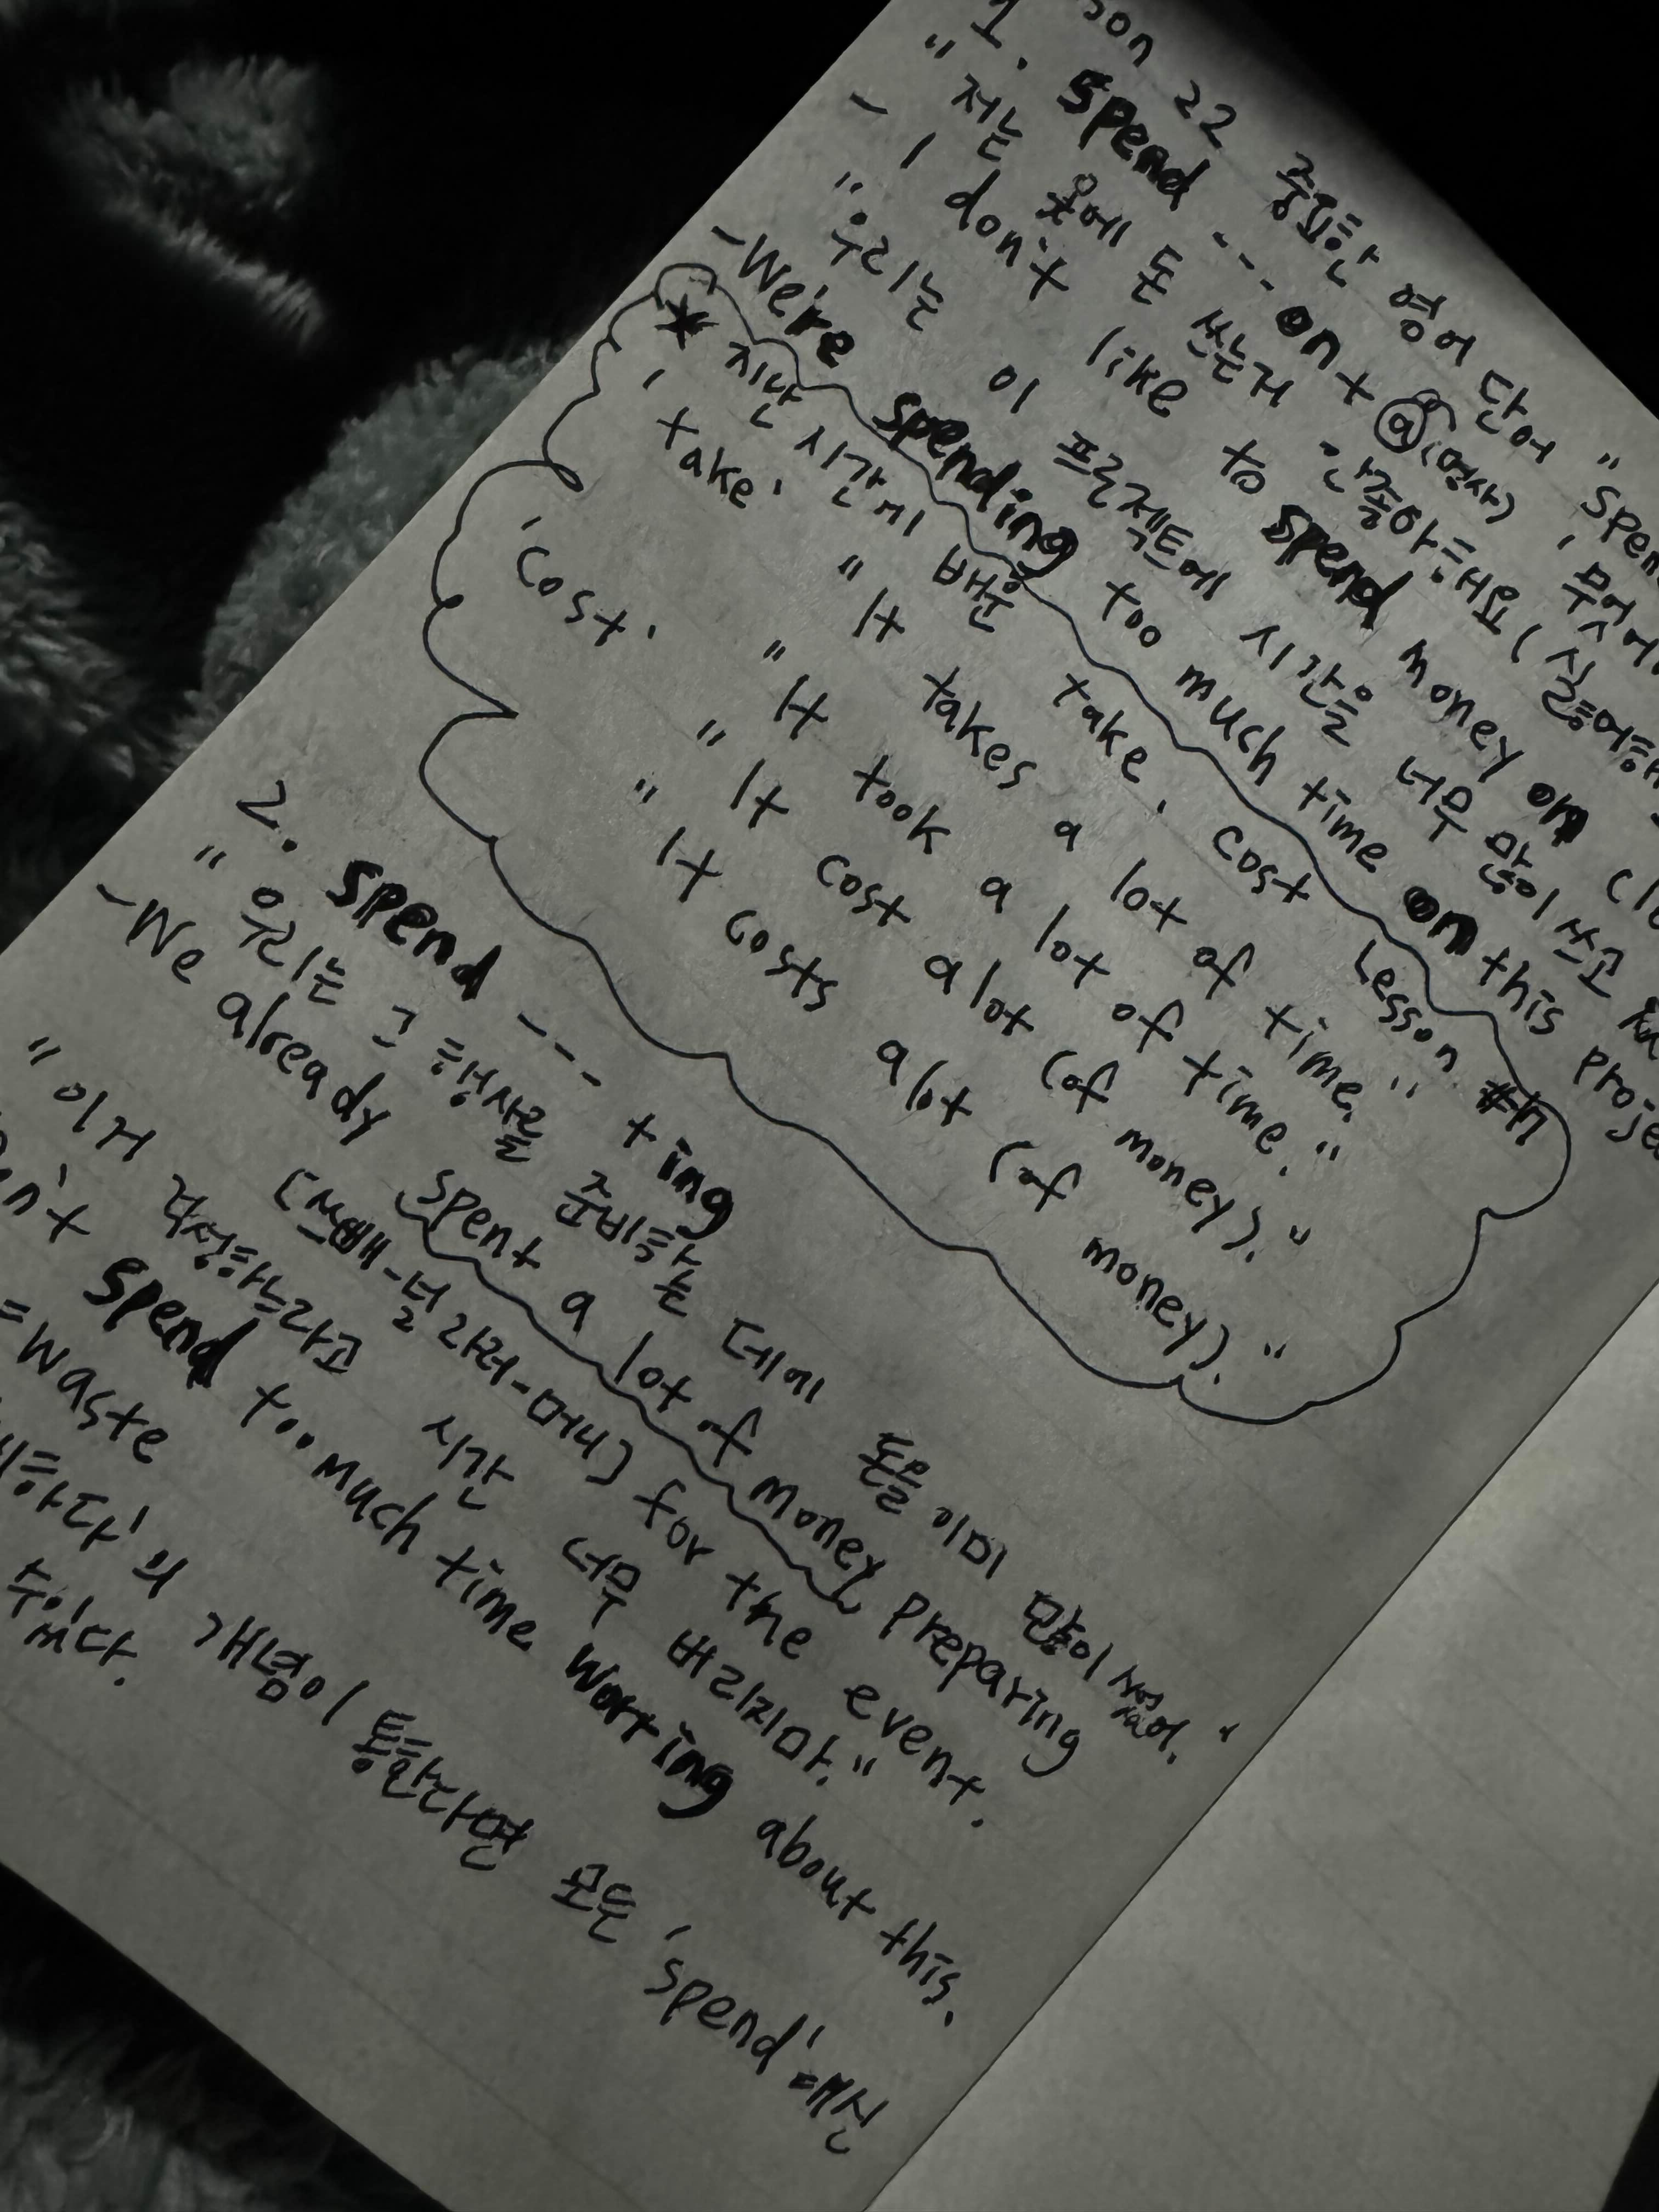 son 22 중요한 영어 단어 "spen
1. spend --- on + ⓐ (명사), 무엇에
" 저는 옷에 돈 쓰는거 안좋아해요 (싫어해
- I don't like to spend money on clo
" 우리는 이 프로젝트에 시간을 너무 많이 쓰고
- We're spending too much time on this proje
* 지난 시간에 배운 take, cost Lesson #17
'take' "It takes a lot of time."
"It took a lot of time."
'cost' "It cost a lot (of money)."
"It costs a lot (of money)."
2. spend --- + ing
" 우리는 그 행사를 준비하는 데에 돈을 이미 많이 썼어."
- We already spent a lot of money preparing
(스뻰-얼라러-머니) for the event.
" 이거 걱정하느라고 시간 너무 버리지마."
n't spend too much time worring about this.
= waste
하다'의 개념이 통한다면 모두 'spend'=대신
수있다.